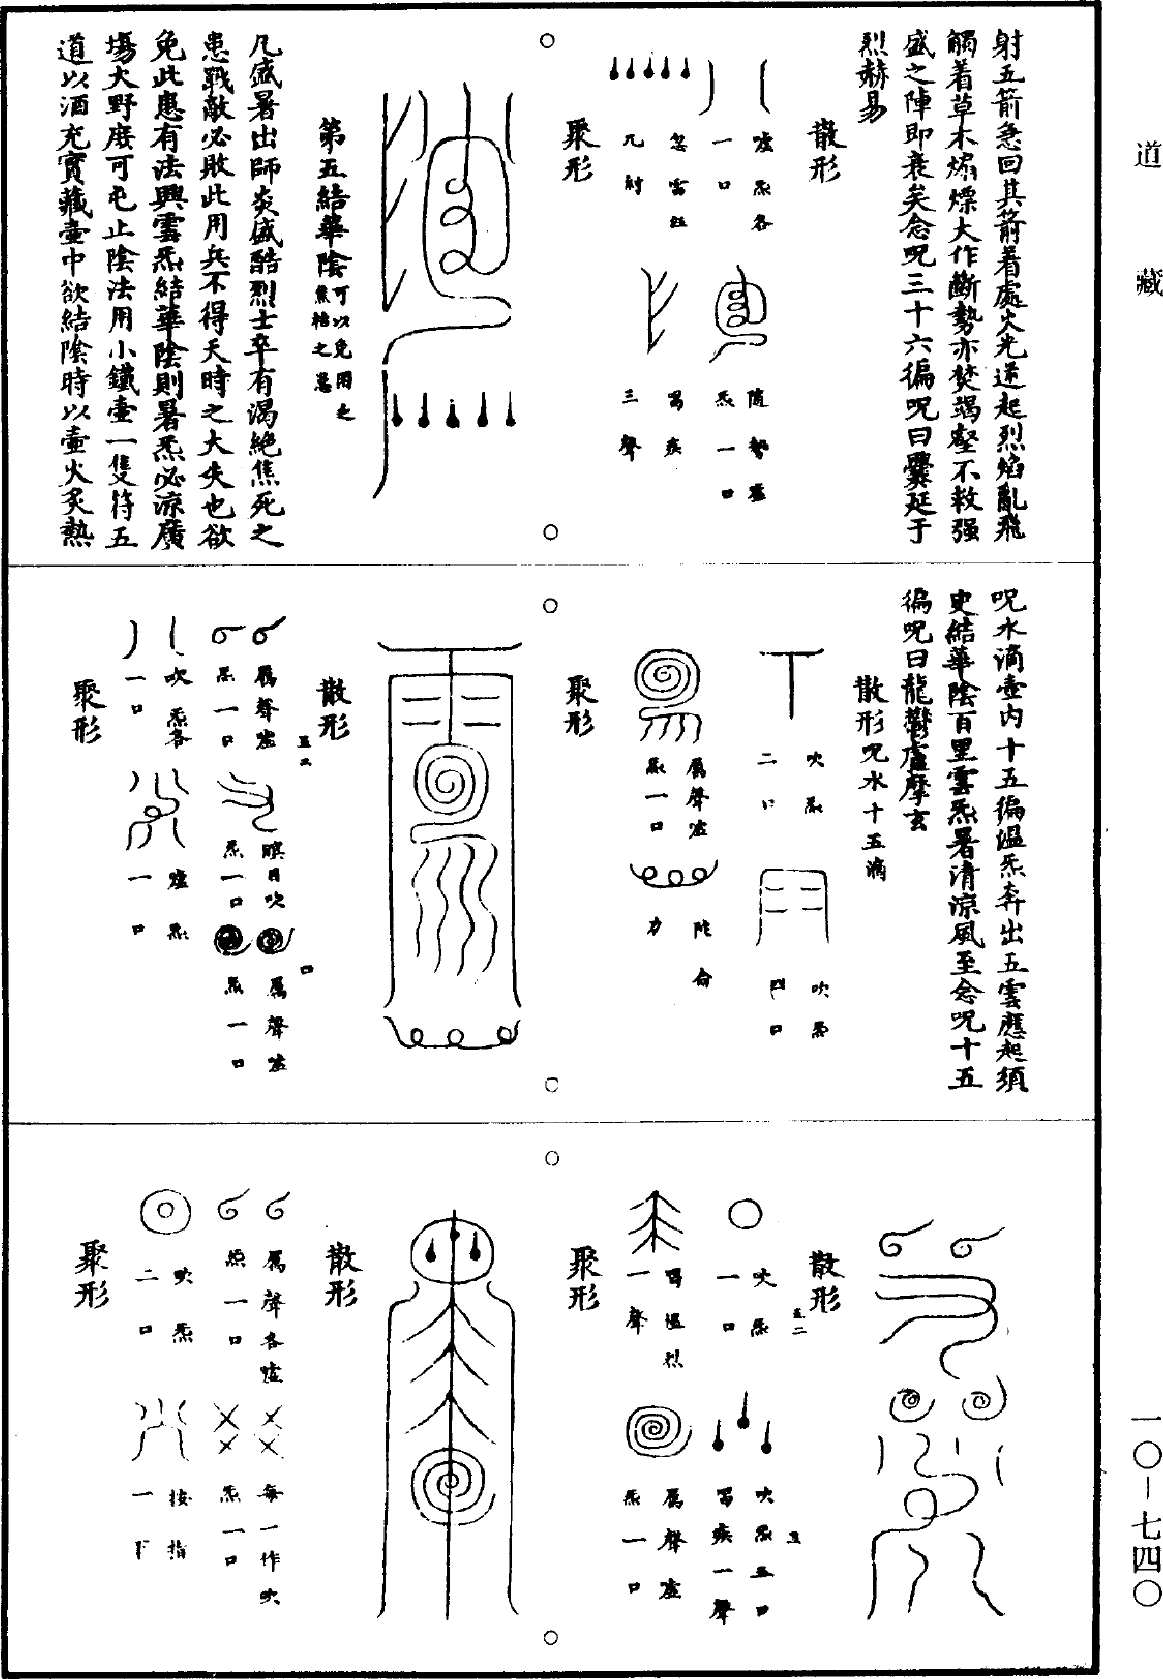 道藏
射五箭急回其箭着處火光逆起烈焰亂飛
觸着草木煽熛大作斷勢亦焚竭壑不救强
盛之陣即衰矣念呪三十六徧呪曰爨延于
烈赫易
散形
嘘炁各
一口
忽雷紐
九射
隨勢嘘
炁一口
喝疾
三聲
聚形
第五結華陰可以免用之焦枯之患
凡盛暑出師炎盛酷烈士卒有渴絶焦死之
患戰敵必敗此用兵不得天時之大失也欲
免此患有法興雲炁結華陰則暑炁必涼廣
塲大野庶可屯止陰法用小鐵壷一隻符五
道以酒充實藏壷中欲結陰時以壷火炙熱
呪水滴壷内十五徧溫炁奔出五雲應起須
史結華陰百里雲炁暑清涼風至念呪十五
徧呪曰龍鬱盧摩玄
散形呪水十五滴
吹炁
二口
吹炁
四口
厲聲嘘
炁一口
陀命
力
聚形
散形
五二
厲聲嘘
炁一口
四
瞑目吹
炁一口
厲聲嘘
炁一口
吹炁各
一口
嘘炁
一口
聚形
散形
五二
吹炁
一口
五
吹炁五口
喝疾一聲
喝溫烈
一聲
厲聲嘘
炁一口
聚形
散形
厲聲各嘘
炁一口
每一作吹
炁一口
吹炁
二口
按指
一下
聚形
一〇—七四〇